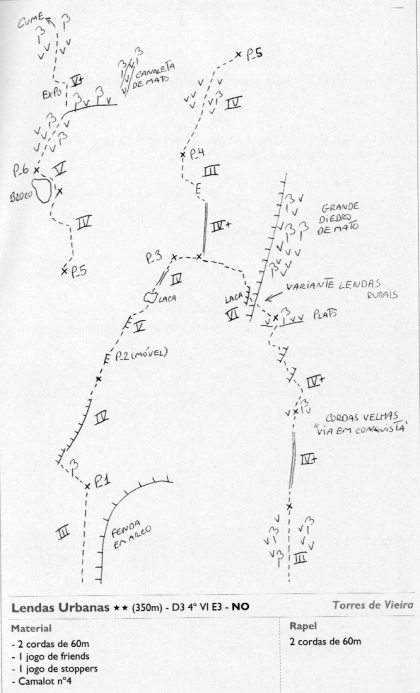 CUME
V+
EXPO
CANALETA
DE MATO
P_6
V
BLOCO
IV
P_5
P_5
IV
P_4
III
E
IV+
P_3
IV
LACA
V
P_2 (MÓVEL)
IV
P_1
III
FENDA
EM ARCO
GRANDE
DIEDRO
DE MATO
LACA
VI
VARIANTE LENDAS
RURAIS
PLATÔ
IV+
CORDAS VELHAS
"VIA EM CONQUISTA"
IV+
III
Lendas Urbanas ★★ (350m) - D3 4º VI E3 - NO
Torres de Vieira
Material
- 2 cordas de 60m
- 1 jogo de friends
- 1 jogo de stoppers
- Camalot nº4
Rapel
2 cordas de 60m